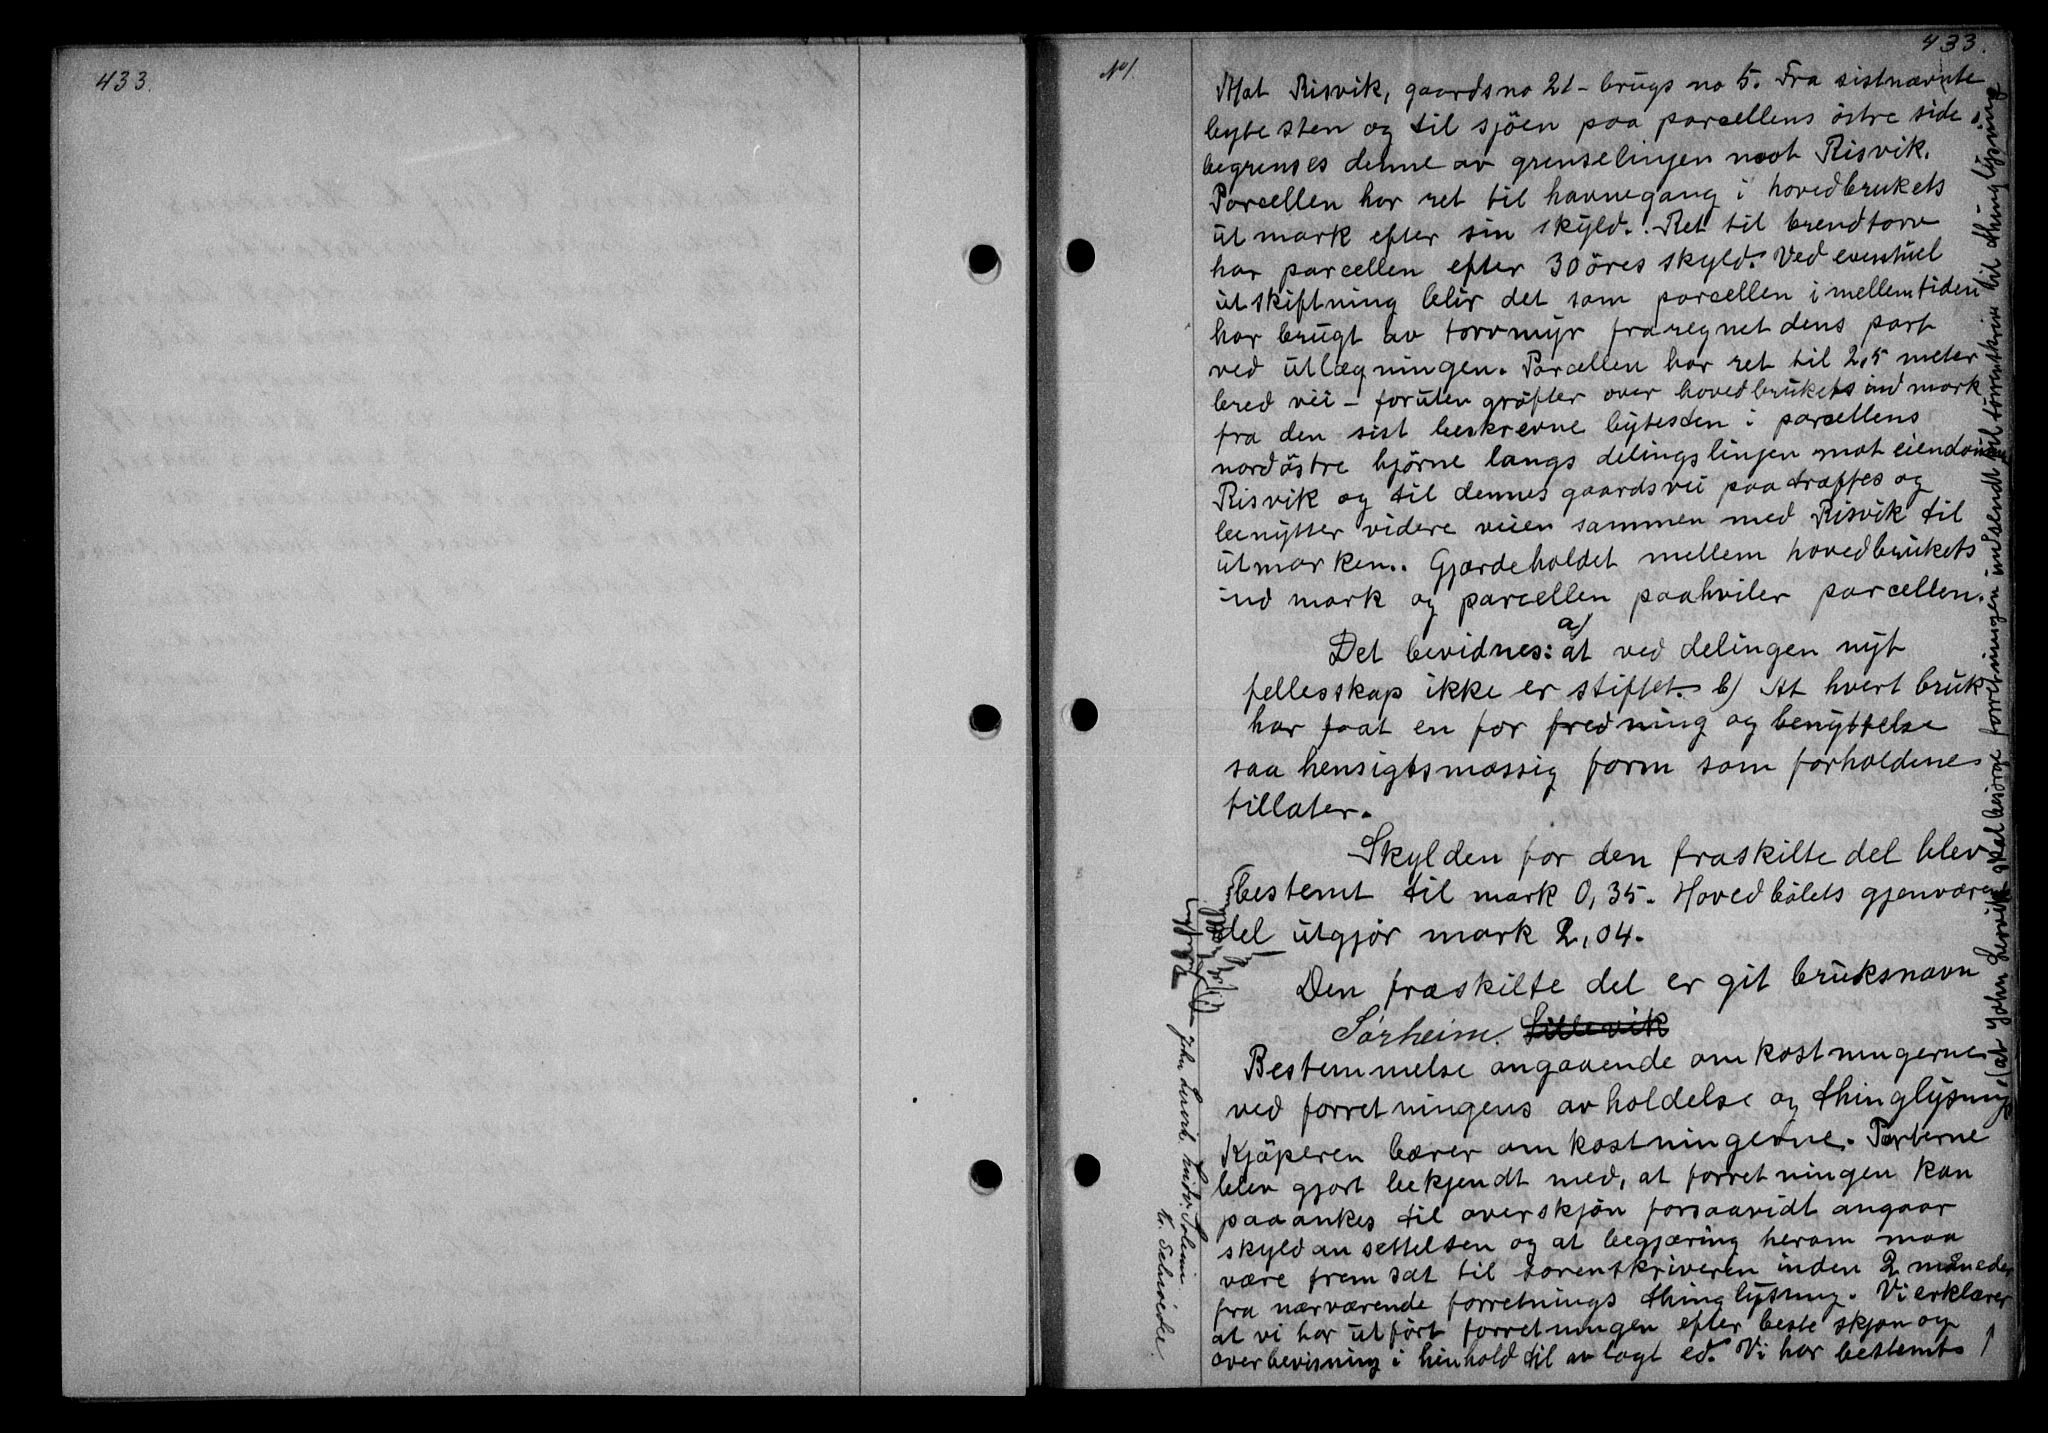 433.
433.
No 1.
Mat Risvik, gaardsno 21 - brugs no 5. Fra sistnævnte
byte sten og til sjöen paa parcellens östre side
begrenses denne av grenselinjen mot Risvik.
Parcellen har ret til havnegang i hovedbrukets
utmark efter sin skyld. Ret til brendtorv
har parcellen efter 30 öres skyld. Ved eventuel
utskiftning blir det som parcellen i mellemtiden
har brugt av torvmyr fraregnet dens part
ved utlægningen. Parcellen har ret til 2,5 meter
bred vei - foruten gröfter over hovedbrukets indmark
fra den sist beskrevne bytesten i parcellens
nordöstre hjörne langs delingslinjen mot eiendommen
Risvik og til dennes gaardsvei paatræffes og
benytter videre veien sammen med Risvik til
utmarken. Gjærdeholdet mellem hovedbrukets
ind mark og parcellen paahviler parcellen.
Det bevidnes: a) at ved delingen nyt
fellesskap ikke er stiftet. b) At hvert bruk
har faat en for fredning og benyttelse
saa hensigtsmæssig form som forholdene
tillater.
Skylden for den fraskilte del blev
bestemt til mark 0,35. Hovedbölets gjenværende
del utgjör mark 2,04.
Den fraskilte del er git bruksnavn
Sörheim. Lillevik
Bestemmelse angaaende omkostningerne
ved forretningens avholdelse og thinglysning
Kjöperen bærer omkostningerne. Parterne
blev gjort bekjendt med, at forretningen kan
paaankes til overskjön forsaavidt angaar
skyldansettelsen og at begjæring herom maa
være fremsat til sorenskriveren inden 2 måneder
fra nærværende forretnings thinglysning. Vi erklærer
at vi har utfört forretningen efter beste skjön og
overbevisning i henhold til avlagt ed. Vi har bestemt
at John Lervik skal besörge forretningen indsendt til sorenskriver til thinglysning
John Lervik